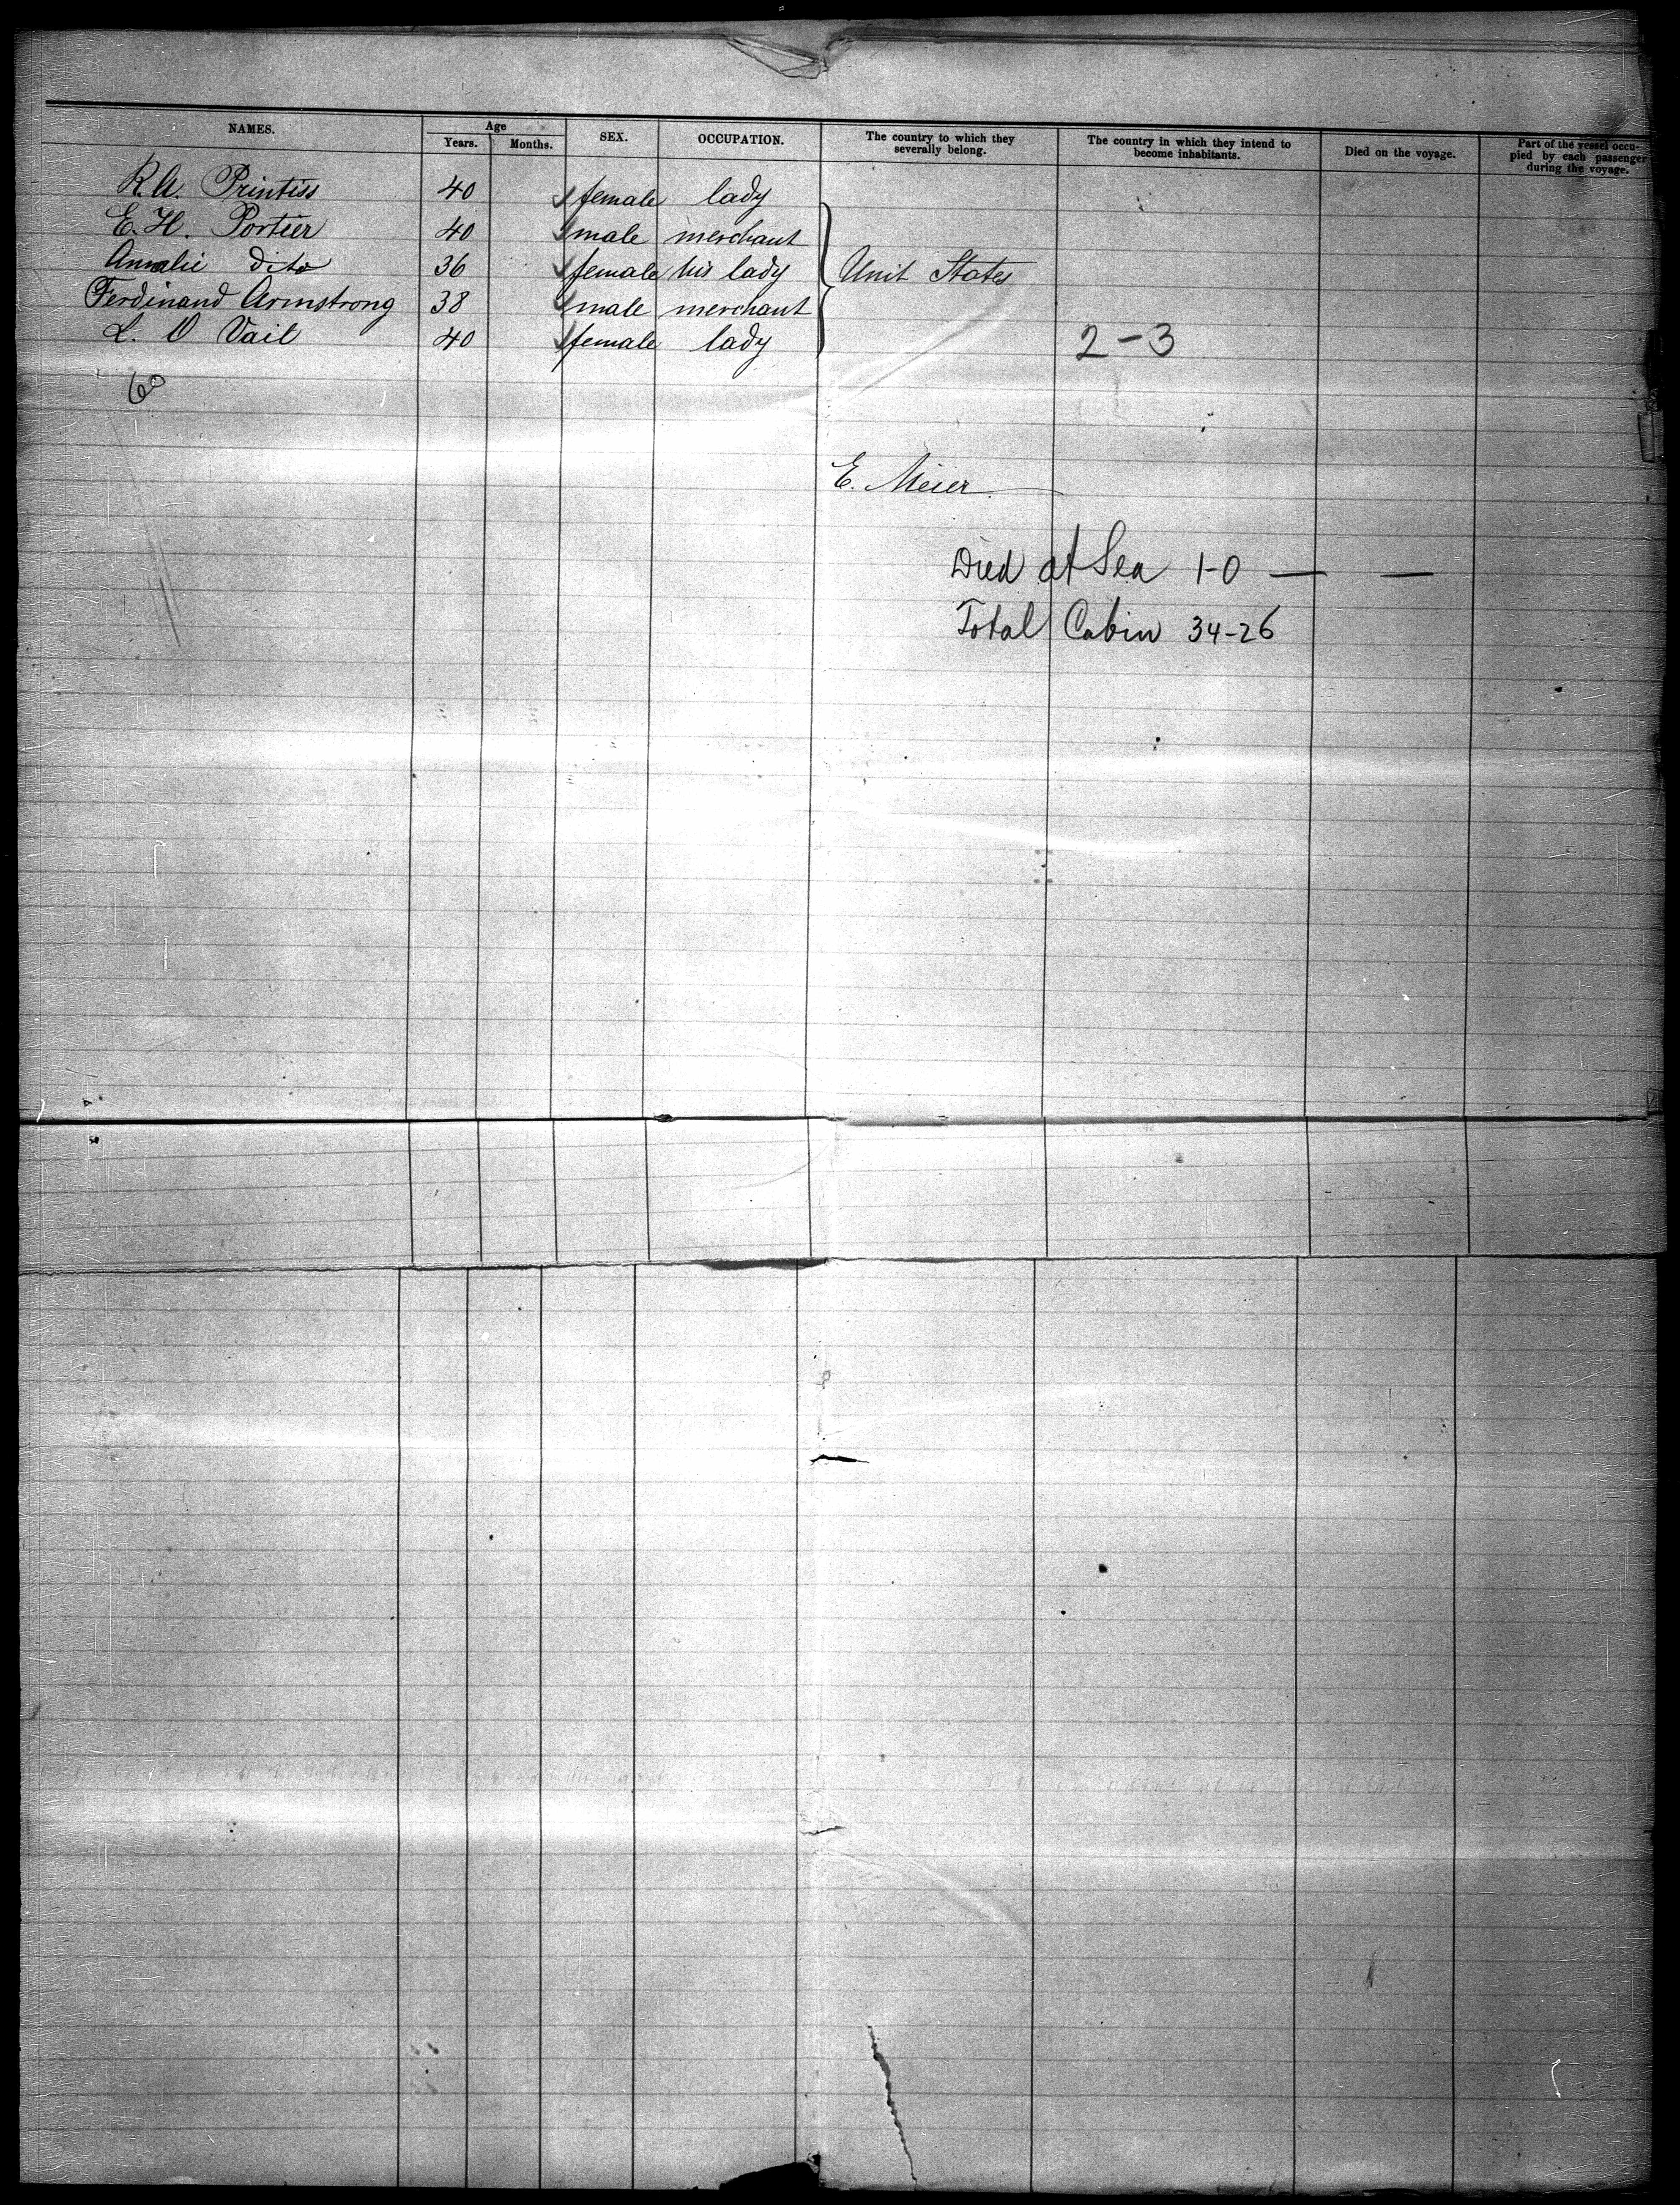 NAMES. Age SEX. OCCUPATION. The country to which they severally belong. The country in which they intend to become inhabitants. Died on the voyage. Part of the vessel occupied by each passenger during the voyage.
Years. Months.
R.A. Printiss 40 female lady
E. H. Portier 40 male merchant
Amalie dito 36 female his lady Unit States
Ferdinand Armstrong 38 male merchant
L. O Vail 40 female lady 2-3
60
E. Meier
Died at Sea 1-0 — —
Total Cabin 34-26